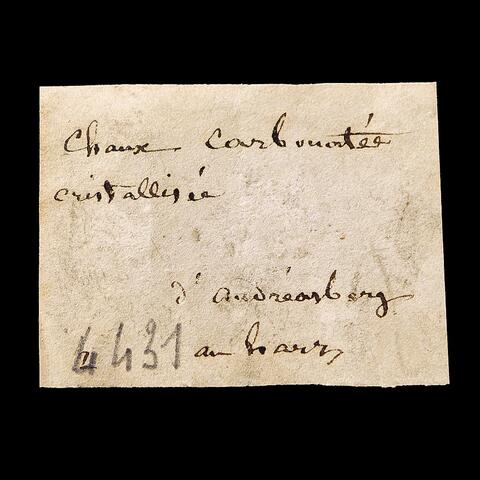 Chaux carbonatée
cristallisée
d'andréasberg
4431 au harz